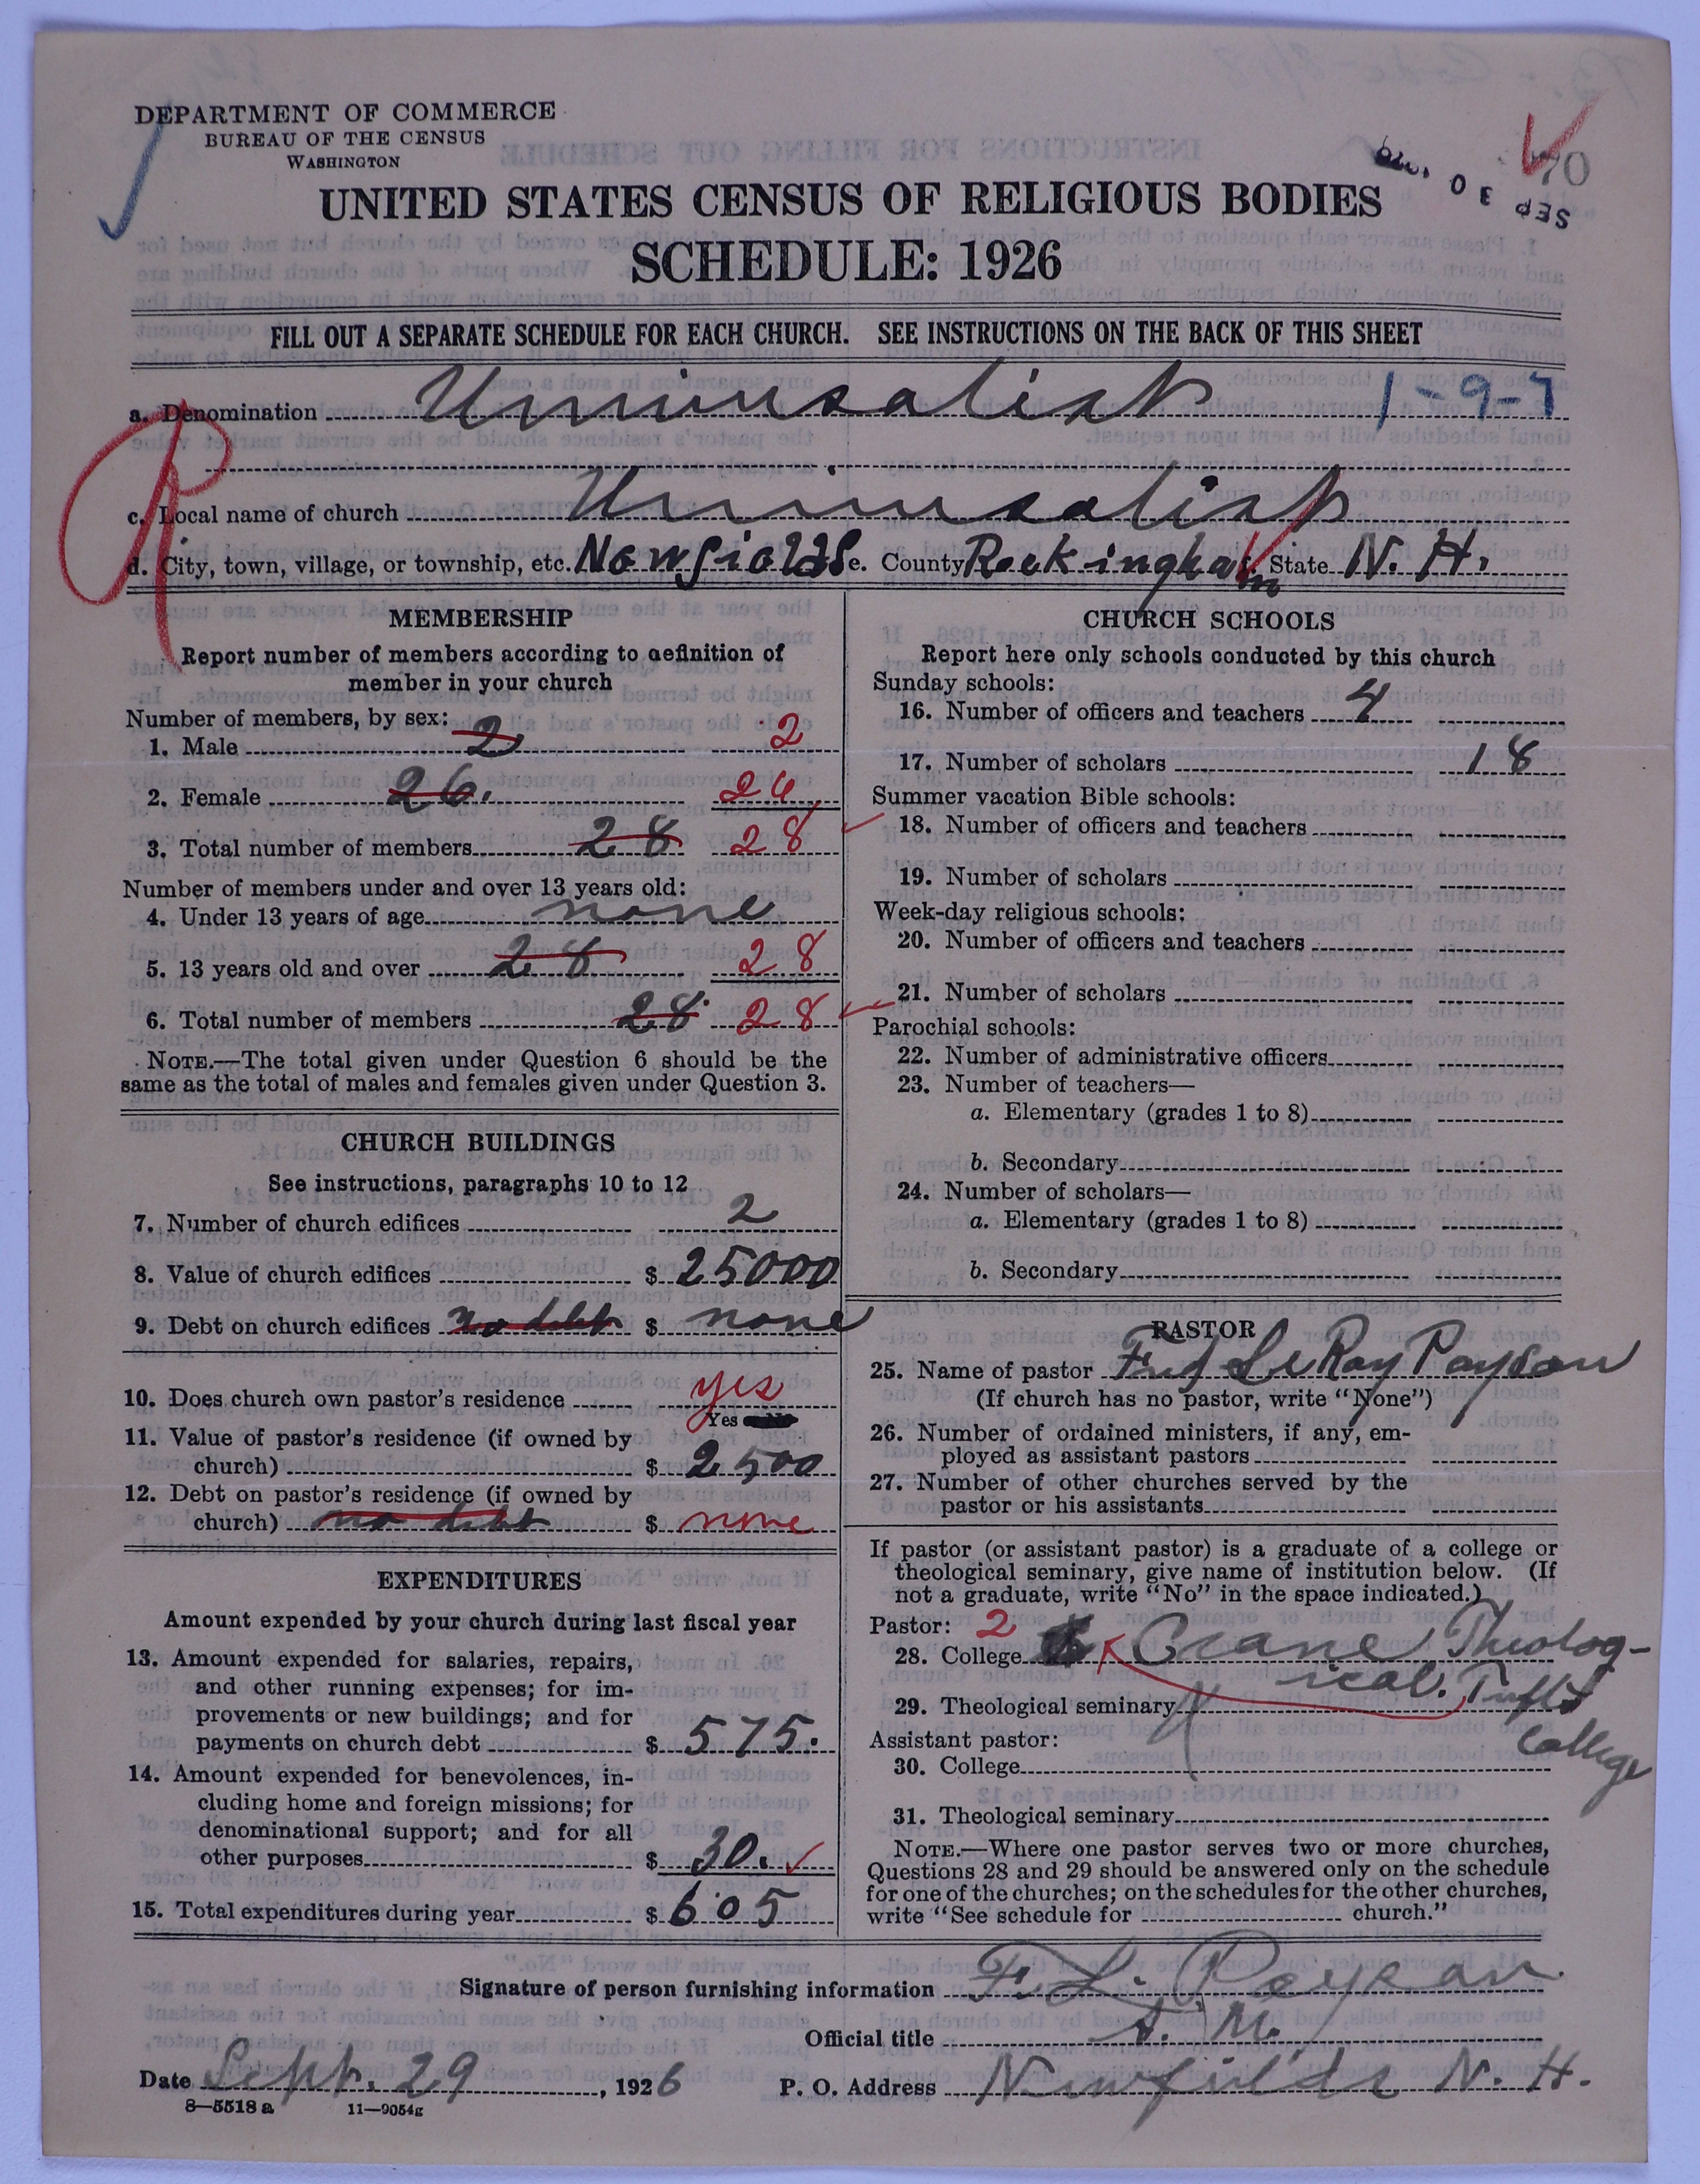 DEPARTMENT OF COMMERCE
BUREAU OF THE CENSUS
WASHINGTON
70
SEP 30
UNITED STATES CENSUS OF RELIGIOUS BODIES
SCHEDULE: 1926
FILL OUT A SEPARATE SCHEDULE FOR EACH CHURCH. SEE INSTRUCTIONS ON THE BACK OF THIS SHEET
a. Denomination Universalist 1-9-7
c. Local name of church Universalist
d. City, town, village, or township, etc. Newfields e. County Rockingham f. State N. H.
MEMBERSHIP
Report number of members according to definition of
member in your church
Number of members, by sex:
1. Male 2 2
2. Female 26. 26
3. Total number of members 28 28
Number of members under and over 13 years old:
4. Under 13 years of age none
5. 13 years old and over 28 28
6. Total number of members 28 28
NOTE.—The total given under Question 6 should be the
same as the total of males and females given under Question 3.
CHURCH BUILDINGS
See instructions, paragraphs 10 to 12
7. Number of church edifices 2
8. Value of church edifices $ 25000
9. Debt on church edifices no debt $ none
10. Does church own pastor's residence yes
Yes
11. Value of pastor's residence (if owned by
church) $ 2500
12. Debt on pastor's residence (if owned by
church) no debt $ none
EXPENDITURES
Amount expended by your church during last fiscal year
13. Amount expended for salaries, repairs,
and other running expenses; for im-
provements or new buildings; and for
payments on church debt $ 575.
14. Amount expended for benevolences, in-
cluding home and foreign missions; for
denominational support; and for all
other purposes $ 30.
15. Total expenditures during year $ 605
CHURCH SCHOOLS
Report here only schools conducted by this church
Sunday schools:
16. Number of officers and teachers 4
17. Number of scholars 18
Summer vacation Bible schools:
18. Number of officers and teachers
19. Number of scholars
Week-day religious schools:
20. Number of officers and teachers
21. Number of scholars
Parochial schools:
22. Number of administrative officers
23. Number of teachers—
a. Elementary (grades 1 to 8)
b. Secondary
24. Number of scholars—
a. Elementary (grades 1 to 8)
b. Secondary
PASTOR
25. Name of pastor Fred LeRoy Payson
(If church has no pastor, write "None")
26. Number of ordained ministers, if any, em-
ployed as assistant pastors
27. Number of other churches served by the
pastor or his assistants
If pastor (or assistant pastor) is a graduate of a college or
theological seminary, give name of institution below. (If
not a graduate, write "No" in the space indicated.)
Pastor: 2
28. College Crane Theolog-
ical. Tufts
29. Theological seminary
College
Assistant pastor:
30. College
31. Theological seminary
NOTE.—Where one pastor serves two or more churches,
Questions 28 and 29 should be answered only on the schedule
for one of the churches; on the schedules for the other churches,
write "See schedule for church."
Signature of person furnishing information F. L. Payson
Official title
Date Sept. 29, 1926 P. O. Address Newfields N. H.
8—5518 a 11—9054g